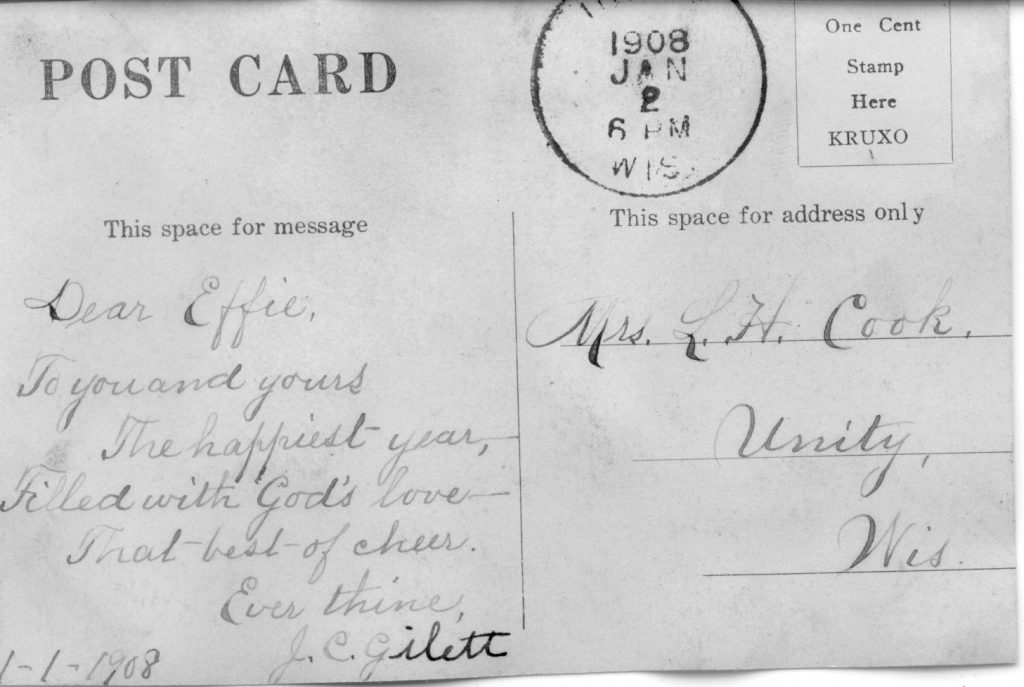 POST CARD
1908
JAN
2
6 PM
WIS.
One Cent
Stamp
Here
KRUXO
This space for message
This space for address only
Dear Effie,
To you and yours
The happiest year,—
Filled with God's love—
That best of cheer.
Ever thine,
J. C. Gilett
1-1-1908
Mrs. L. H. Cook,
Unity,
Wis.